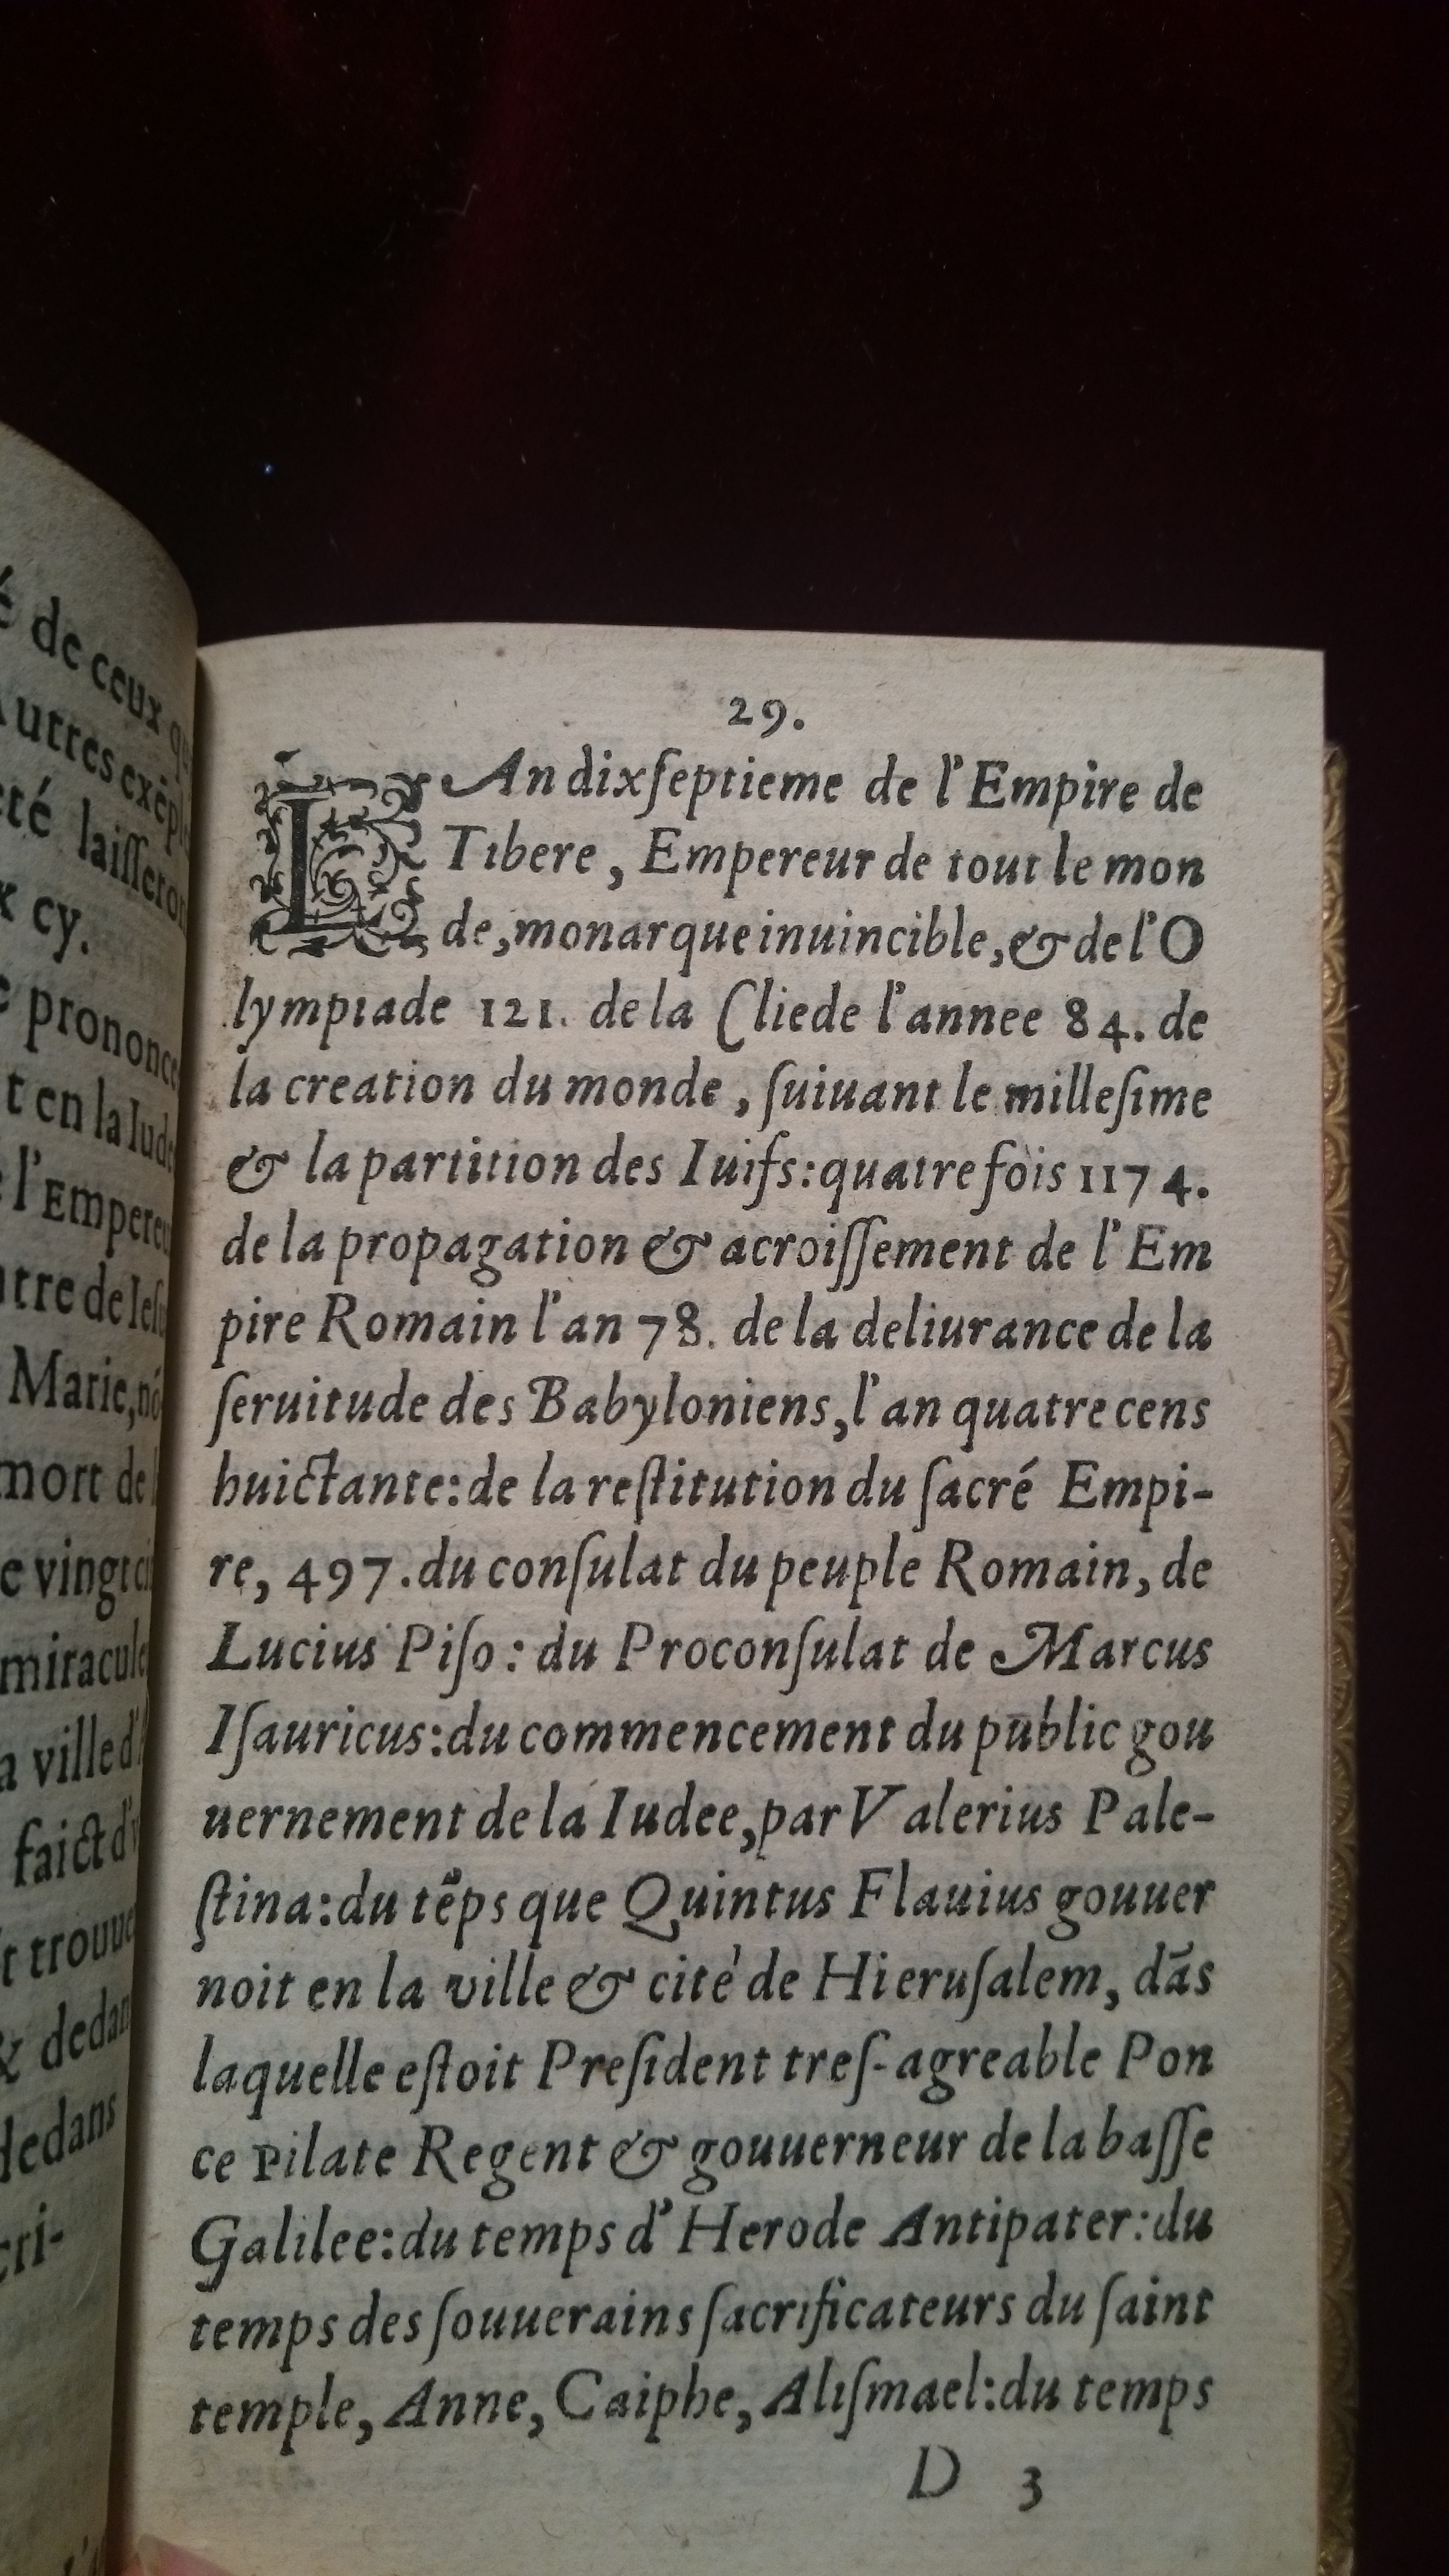 é de ceux
Autres exẽpl
té laisseron
x cy.
prononce
t en la Iud
l'Empere
tre de Ies
Marie, nó
mort de
e vingt ci
miracule
a ville d'
faict d'
t trouue
& dedan
dedans
cri-
29.
L'An dixſeptieme de l'Empire de
Tibere, Empereur de tout le mon
de, monarque inuincible, & de l'O
lympiade 121. de la Cliede l'annee 84. de
la creation du monde, ſuiuant le milleſime
& la partition des Iuifs: quatre fois 1174.
de la propagation & acroiſſement de l'Em
pire Romain l'an 78. de la deliurance de la
ſeruitude des Babyloniens, l'an quatre cens
huictante: de la reſtitution du ſacré Empi-
re, 497. du conſulat du peuple Romain, de
Lucius Piſo: du Proconſulat de Marcus
Iſauricus: du commencement du public gou
uernement de la Iudee, par Valerius Pale-
ſtina: du tẽps que Quintus Flauius gouuer
noit en la ville & cité de Hieruſalem, dãs
laquelle eſtoit Preſident treſ-agreable Pon
ce Pilate Regent & gouuerneur de la baſſe
Galilee: du temps d'Herode Antipater: du
temps des ſouuerains ſacrificateurs du ſaint
temple, Anne, Caiphe, Aliſmael: du temps
D 3